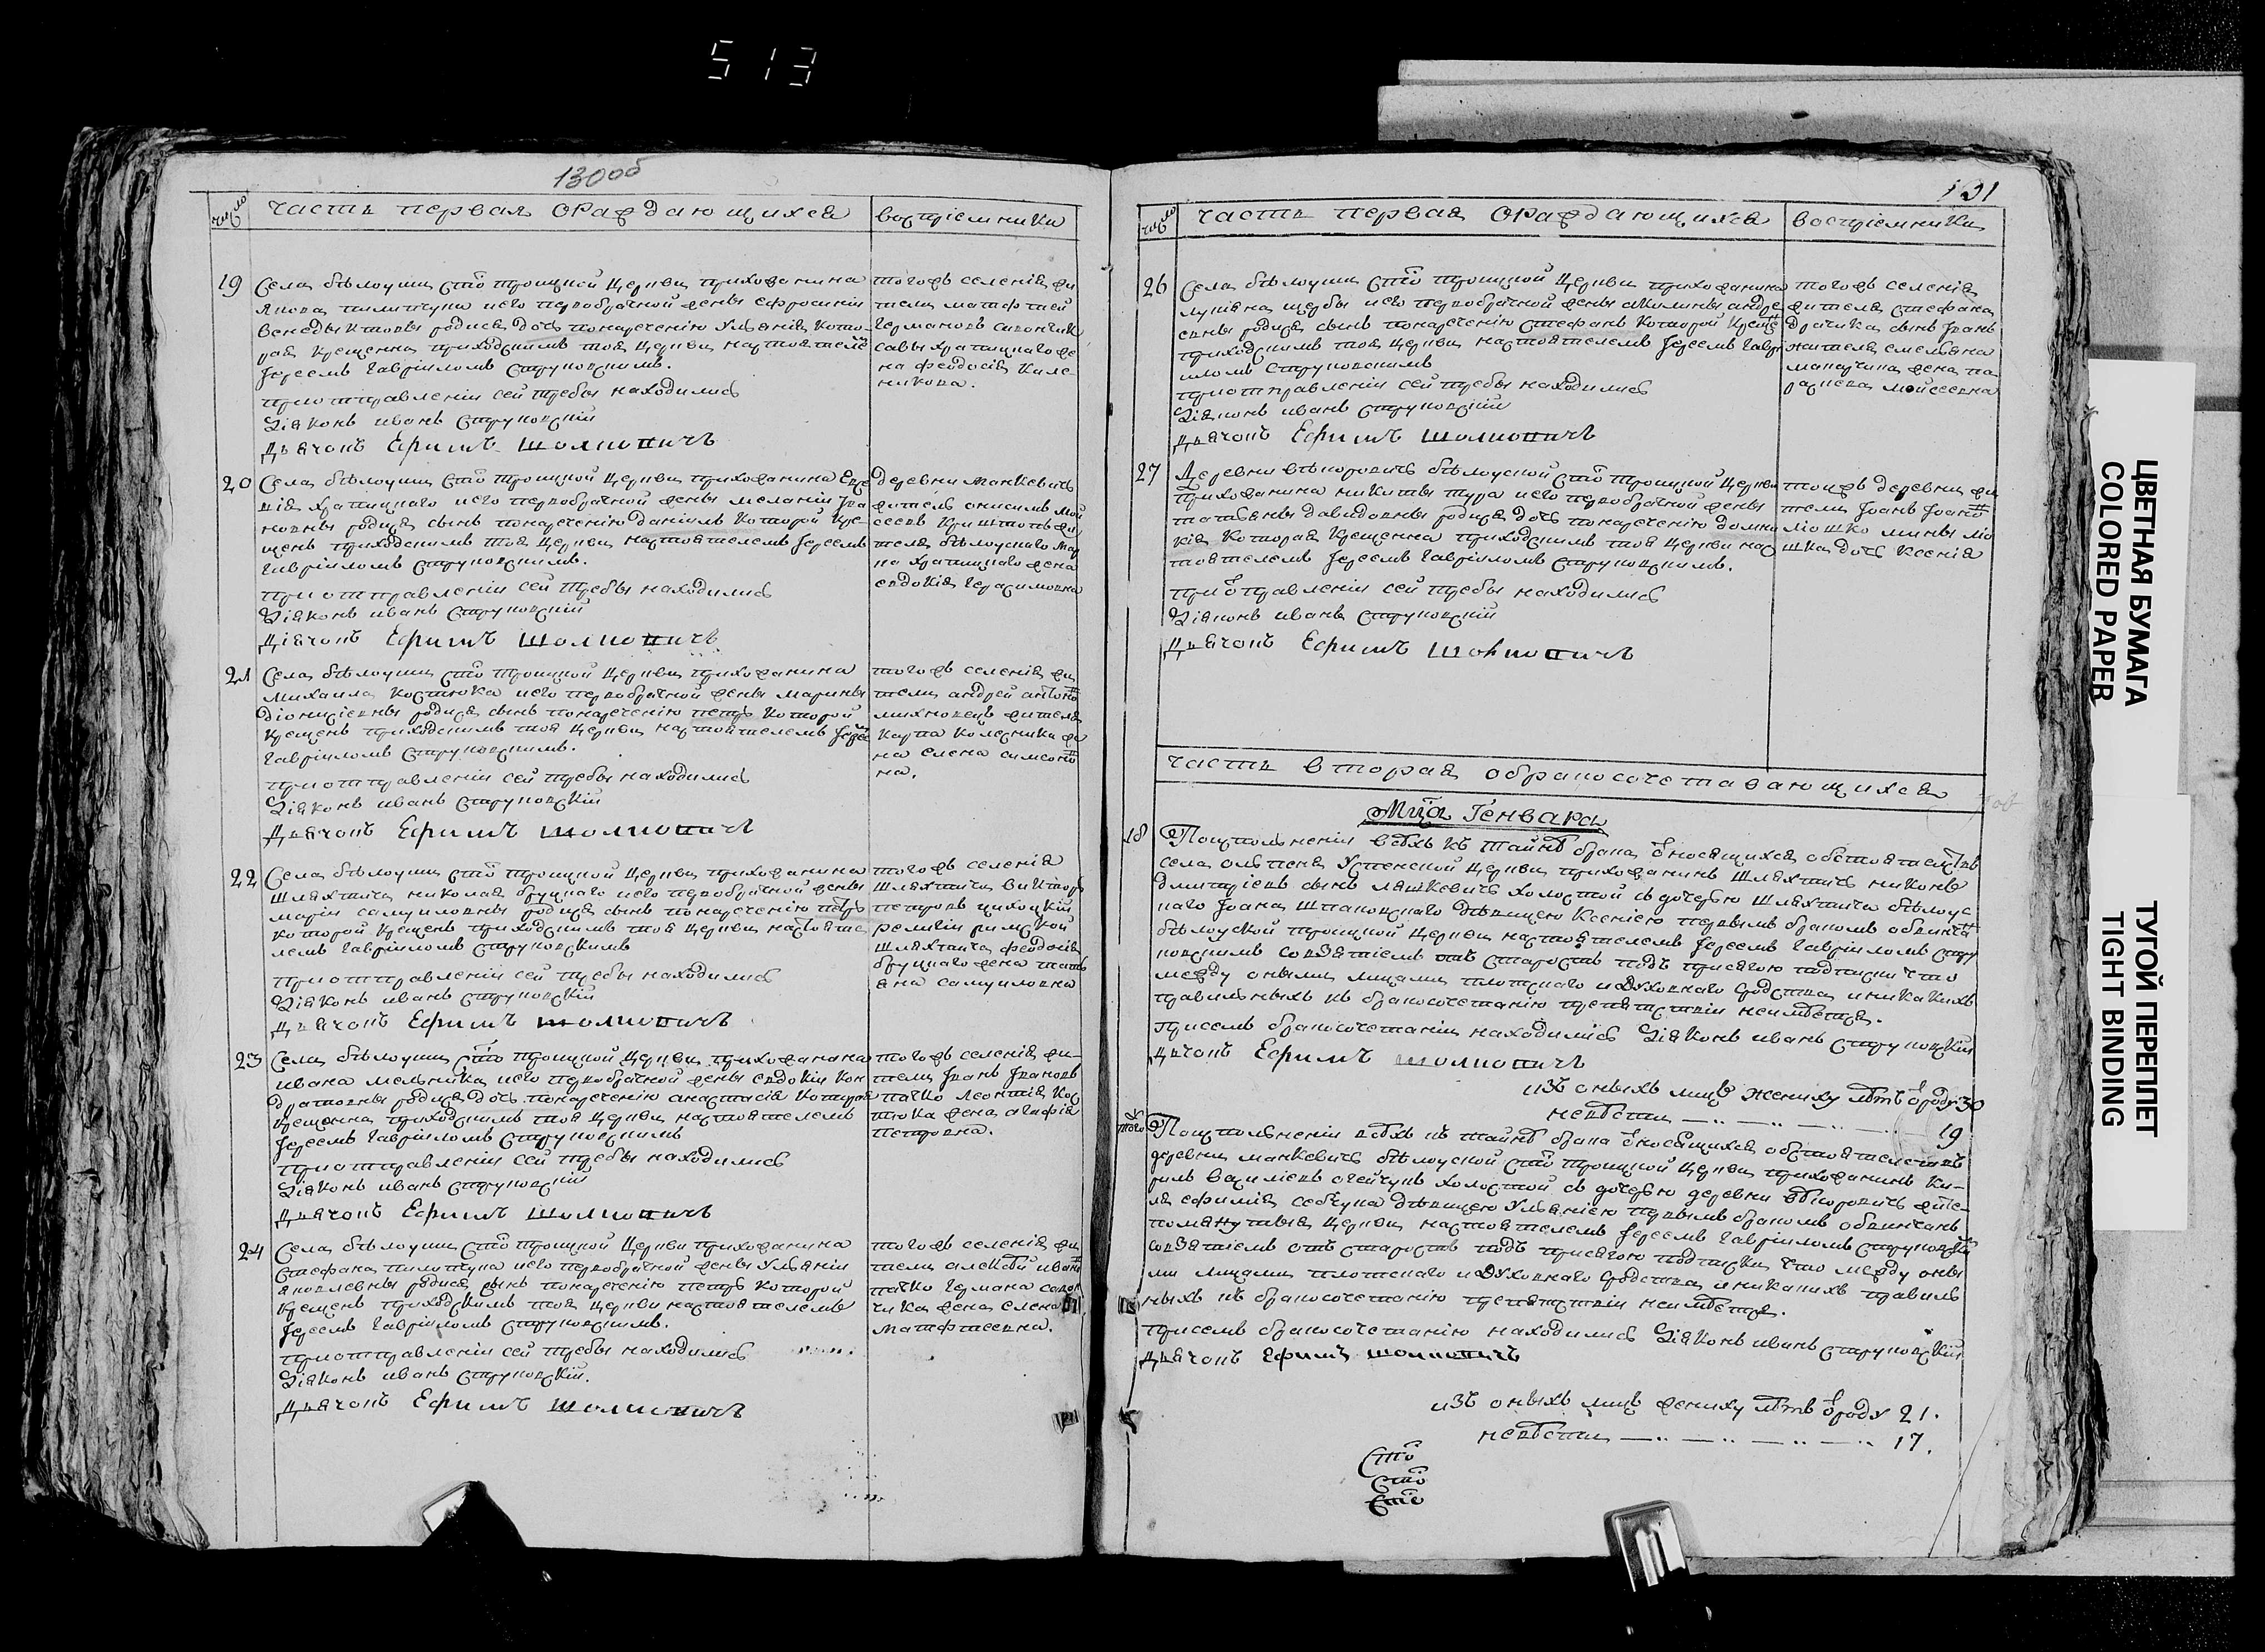 513
130об
число
часть первая о раждающихся
воспріемники
19
Села бѣлоуши сто троицкой церкви прихожанина
Якова пилипчука и его первобрачной жены ефросиніи
венедыктовы родися дочь по наречению Ульянія кото-
рая крещенна приходскимъ тоя церкви настоятеле
Іереемъ Гавріиломъ Струковскимъ.
при отправленіи сей требы находились
Діяконъ иванъ струковскій
Дьячокъ Ефимъ Шолкович
тогожъ селенія жи
тель матфтей
Германовъ савончик
савы храпицкаго же
на феодосія Киле-
никова.
20
Села бѣлоуши сто троицкой церкви прихожанина
вія храпицкаго и его первобрачной жены меланіи Іва
новны родися сынъ по наречению даніилъ которой кре-
щенъ приходскимъ тоя церкви настоятелемъ Іереемъ
Гавріиломъ струковскимъ.
при отправленіи сей требы находились
Діяконъ иванъ струковскій
Діячокъ Ефимъ Шолкович
деревни манкевичъ
житель онисимъ мой
сеевъ Криштопъ жи
теля бѣлоускаго мар
ка храпицкаго жена
евдокія Герасимовна
21
Села бѣлоуши сто троицкой церкви прихожанина
михаила костюка и его первобрачной жены марины
діонисіевны родися сынъ по наречению петръ которой
крещенъ приходскимъ тоя церкви настоятелемъ Іерее
Гавріиломъ струковскимъ.
при отправленіи сей требы находились
Діяконъ иванъ струковскій
Дьячокъ Ефимъ Шолкович
тогожъ селенія жи
тель андрей антоно
михновецъ жителя
карпа колесника же
на елена симеоно
на.
22
Села бѣлоуши сто троицкой церкви прихожанина
Шляхтича николая бруцкаго и его первобрачной жены
маріи самуиловны родися сынъ по наречению петръ
которой крещенъ приходскимъ тоя церкви настояте
лемъ Гавріиломъ струковскимъ
при отправленіи сей требы находились
Діяконъ иванъ струковскій
Дьячокъ Ефимъ Шолкович
тогожъ селенія
Шляхтичъ викторъ
петровъ цихоцкій
религіи римской
Шляхтича феодосія
бруцкаго жена тать
яна самуиловна
23
Села бѣлоуши сто троицкой церкви прихожанина
ивана мельника и его первобрачной жены евдокіи кон
дратовны родися дочь по наречению анастасія которая
крещенна приходскимъ тоя церкви настоятелемъ
Іереемъ Гавріиломъ струковскимъ
при отправленіи сей требы находились
Діяконъ иванъ струковскій
Дьячокъ Ефимъ Шолкович
тогожъ селенія жи-
тель Іванъ Івановъ
пачко леонтія кос
тюка жена агафія
петровна.
24
Села бѣлоуши сто троицкой церкви прихожанина
стефана пилипчука и его первобрачной жены Ульяніи
яковлевны родися сынъ по наречению петръ которой
крещенъ приходскимъ тоя церкви настоятелемъ
Іереемъ Гавріиломъ струковскимъ.
при отправленіи сей требы находились
Діяконъ иванъ струковскій.
Дьячокъ Ефимъ Шолкович
тогожъ селенія жи
тель алексѣй иван
пачко Германа савон
чика жена елена
матфтеевна.
131
число
часть первая о раждающихся
воспріемники
26
Села бѣлоуши сто троицкой церкви прихожанина
лукіяна щербы и его первобрачной жены акилины андре
евны родися сынъ по наречению стефанъ которой креще
приходскимъ тоя церкви настоятелемъ Іереемъ Гаврі
иломъ струковскимъ
при отправленіи сей требы находились
Діяконъ иванъ струковскій
Дьячокъ Ефимъ Шолкович
тогожъ селенія
жителя стефана
драчика сынъ Іванъ
жителя емельяна
жена па
раскева мойсеевна
27
Деревни вѣкоровичъ бѣлоуской сто троицкой церкви
прихожанина никиты тура и его первобрачной жены
татьяны давидовны родися дочь по наречению домни
кія которая крещенна приходскимъ тоя церкви нас
тоятелемъ Іереемъ Гавріиломъ струковскимъ.
при отправленіи сей требы находились
Діяконъ иванъ струковскій
Дьячокъ Ефимъ Шолкович
тояжъ деревни жи
тель Іванъ Івано
люшко мины лю
шка дочь Ксенія
часть вторая о бракосочетавающихся
Мца Генваря
18
По исполненіи всѣхъ къ тайнѣ брака относящихся обстоятельствъ
села ольпеня Успенской церкви прихожанинъ шляхтичъ никонъ
дмитріевъ сынъ ляшкевичъ холостой съ дочерью шляхтича бѣлоус
каго Іоана Шпаковскаго дѣвицею Ксеніею первымъ бракомъ обвинча
бѣлоуской троицкой церкви настоятелемъ Іереемъ Гавріиломъ стру
ковскимъ со взятіемъ отъ старостъ подъ присягою подписки что
между оными лицами плотскаго и духовнаго сродства и никакихъ
правильныхъ къ бракосочетанію препятствіи неимѣется.
при семъ бракосочетаніи находились Діяконъ иванъ струковскій
Дьячокъ Ефимъ Шолкович
изъ оныхъ лицъ жениху лѣтъ отроду 30
невѣсти 19
По исполненіи всѣхъ къ тайнѣ брака относящихся обстоятельствъ
деревни манкевичъ бѣлоуской сто троицкой церкви прихожанинъ ки-
рилъ василіевъ холостой съ дочерью деревни вѣкоровичъ жите-
ля ефимія дѣвицею Ульяніею первымъ бракомъ обвинчанъ
помянутыя церкви настоятелемъ Іереемъ Гавріиломъ струковски
со взятіемъ отъ старостъ подъ присягою подписки что между оны
ми лицами плотскаго и духовнаго сродства и никакихъ правиль
ныхъ къ бракосочетанію препятствіи неимѣется.
при семъ бракосочетанію находились Діяконъ иванъ струковскій
Дьячокъ Ефимъ Шолкович
изъ оныхъ лицъ жениху лѣтъ отроду 21.
невѣсти 17.
Сто
Сто
Сте
ЦВЕТНАЯ БУМАГА
COLORED PAPER
ТУГОЙ ПЕРЕПЛЕТ
TIGHT BINDING